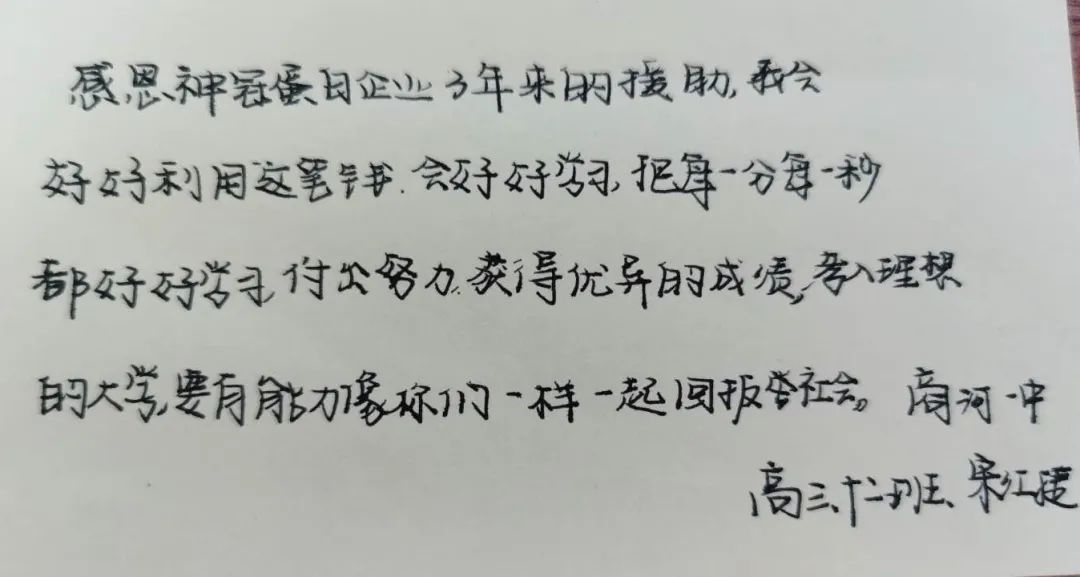 感恩神冠蛋白企业3年来的援助,我会
好好利用这笔钱.会好好学习,把每一分每一秒
都好好学习,付出努力.获得优异的成绩,考入理想
的大学,要有能力像你们一样一起回报社会。商河一中
高三、十二班、宋红